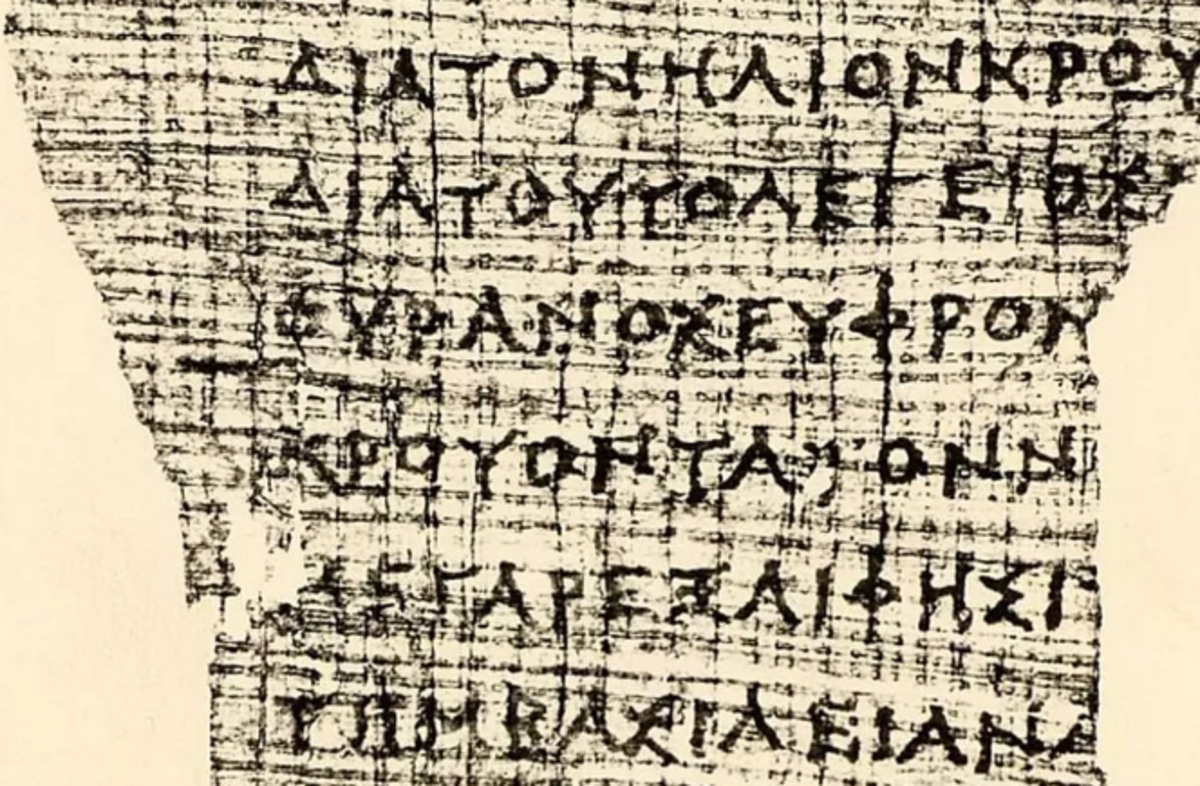 ΔΙΑΤΟΝΗΛΙΟΝΚΡΟΥ
ΔΙΑΤΟΥΤΟΛΕΓΕΙΟΣΕ
ΟΥΡΑΝΟΣΕΥΦΡΟΝ
ΚΡΟΥΟΝΤΑ ΟΝΝ
ΔΕΓΑΡΕΞΑΙΦΗΣΙ
ΤΗΜΒΑΣΙΛΕΙΑΝ